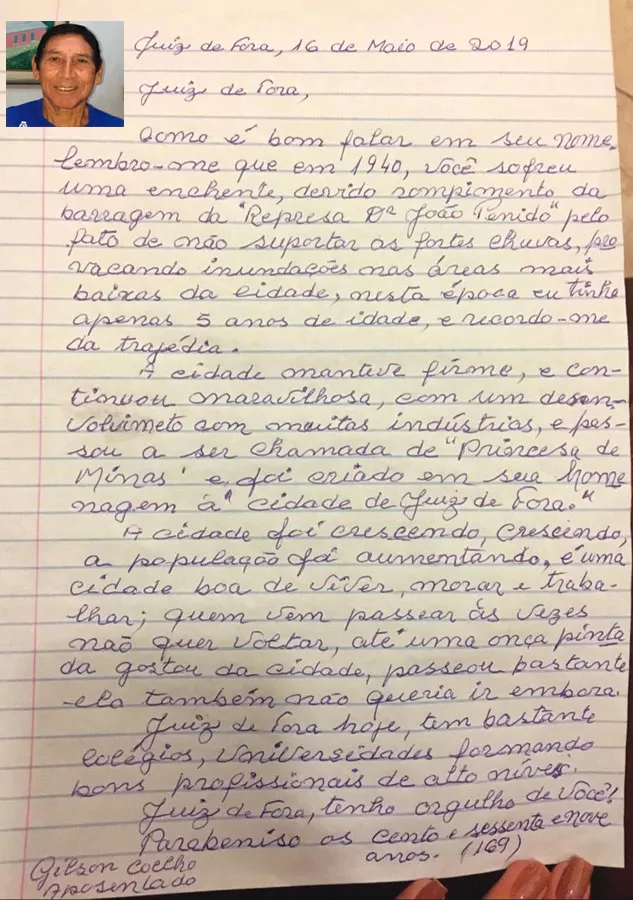 Juiz de Fora, 16 de Maio de 2019
Juiz de Fora,
Como é bom falar em seu nome,
lembro-me que em 1940, você sofreu
uma enchente, devido rompimento da
barragem da "Represa Dr João Penido" pelo
fato de não suportar as fortes chuvas, pro
vacando inundações nas áreas mais
baixas da cidade, nesta época eu tinha
apenas 5 anos de idade, e recordo-me
da tragédia.
A cidade manteve firme, e con-
tinuou maravilhosa, com um desen-
volvimeto com muitas indústrias, e pas-
sou a ser chamada de "Princesa de
Minas" e foi criado em sua home
nagem à "cidade de Juiz de Fora."
A cidade foi crescendo, crescendo,
a população foi aumentando, é uma
cidade boa de viver, morar e traba-
lhar; quem vem passear às vezes
não quer voltar, até uma onça pinta
da gostou da cidade, passeou bastante
ela também não queria ir embora.
Juiz de Fora hoje, tem bastante
colégios, Universidades formando
bons profissionais de alto níves.
Juiz de Fora, tenho orgulho de você!
Parabeniso os cento e sessenta e nove
anos. (169)
Gilson Coelho
Aposentado